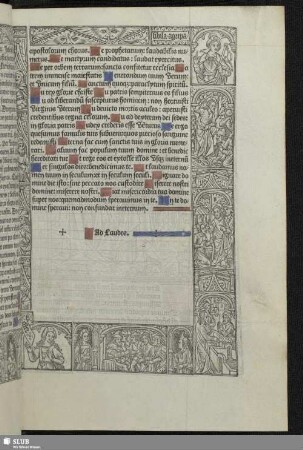 apostolorum chorus. Te prophetarum: laudabilis nu
merus. Te martyrum candidatus: laudat exercitus.
Te per orbem terrarum: sancta confitetur ecclesia.
trem immense maiestatis. Venerandum tuum verum:
et unicum filium. Sanctum quoque paraclytum spiritū.
Tu rex glorie christe. Tu patris sempiternus es filius.
Tu ad liberandū suscepturus hominem: non horruisti
virginis uterum. Tu devicto mortis aculeo: aperuisti
credentibus regna celorum. Tu ad dexteram dei sedes
in gloria patris. Iudex crederis esse venturus. Te ergo
quesumus famulis tuis subveni: quos precioso sanguine
redemisti. Eterna fac cum sanctis tuis in gloria nume
rari. Salvum fac populum tuum domine: et benedic
hereditati tue. Et rege eos et extolle illos usque ineternū
Per singulos dies: benedicimus te. Et laudamus no
men tuum in seculum: et in seculum seculi. Dignare do
mine die isto: sine peccato nos custodire. Miserere nostri
domine: miserere nostri. Fiat misericordia tua domine
super nos: quemadmodum speravimus in te. In te do
mine speravi: non confundar ineternum.
Ad Laudes.
SLUB